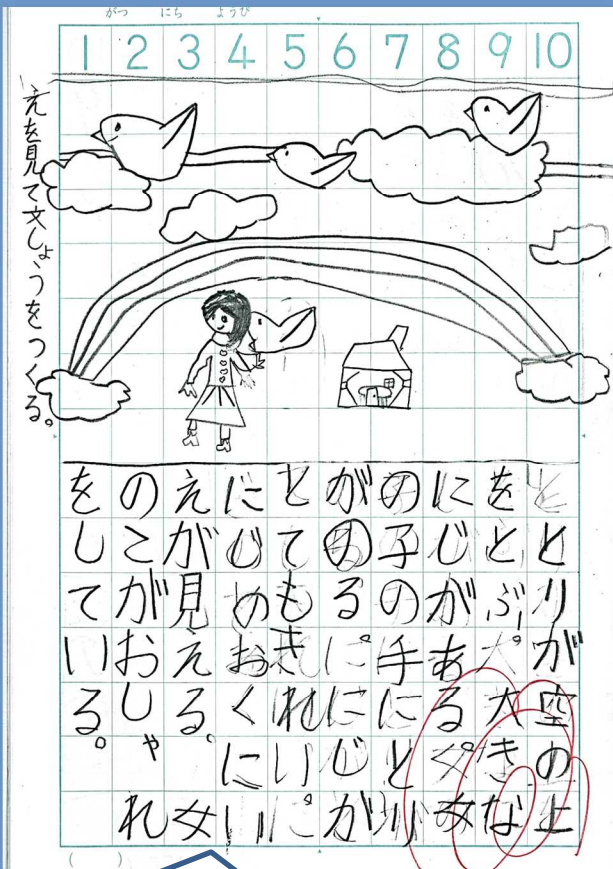 がつ にち ようび
1 2 3 4 5 6 7 8 9 10
えを見て文しょうをつくる。
とりが空の上
をとぶ。大きな
にじがある。女
の子の手にとり
がのる。にじが
とてもきれいだ。
にじのおくにい
えが見える。女
のこがおしゃれ
をしている。
( )